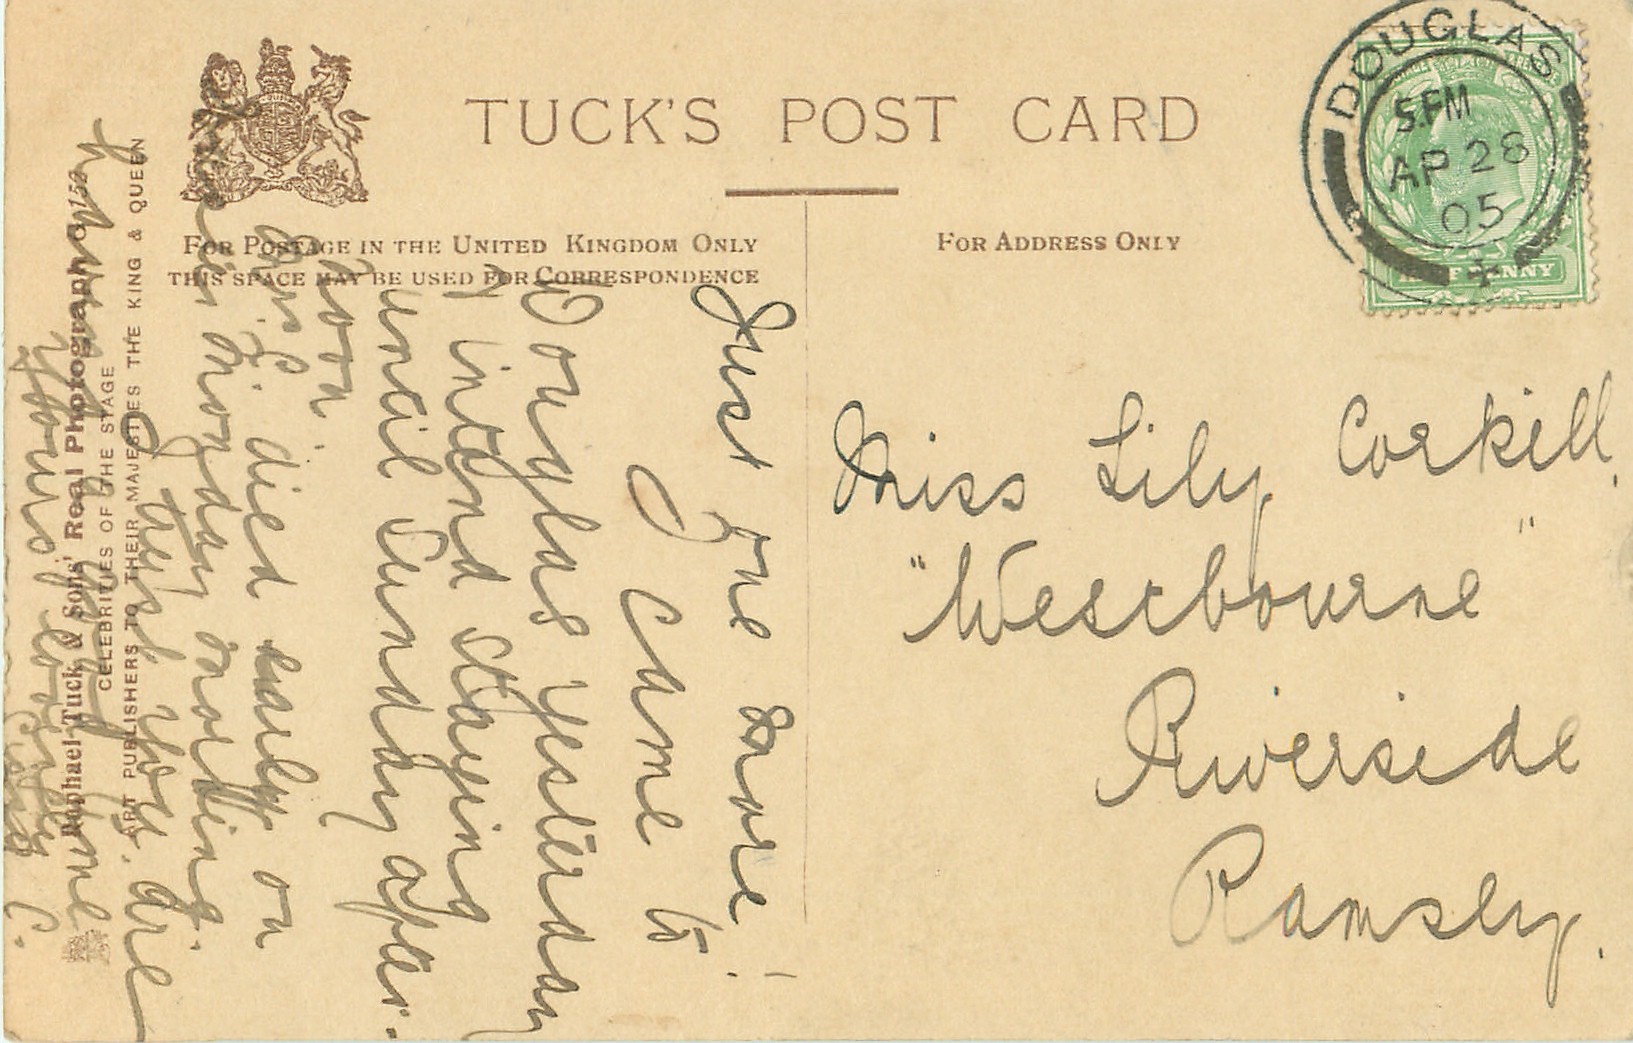 TUCK'S POST CARD
FOR POSTAGE IN THE UNITED KINGDOM ONLY
THIS SPACE MAY BE USED FOR CORRESPONDENCE
FOR ADDRESS ONLY
DOUGLAS
5.PM
AP 28
05
Miss Lily Corkill,
"Westbourne"
Riverside
Ramsey.
Just one more!
I came to
Douglas yesterday
& intend staying
until Sunday after.
noon.
died early on
Monday morning.
I trust you are
having a good time
Yours lovingly
C.
Raphael Tuck & Sons' "Real Photograph"
CELEBRITIES OF THE STAGE
ART PUBLISHERS TO THEIR MAJESTIES THE KING & QUEEN